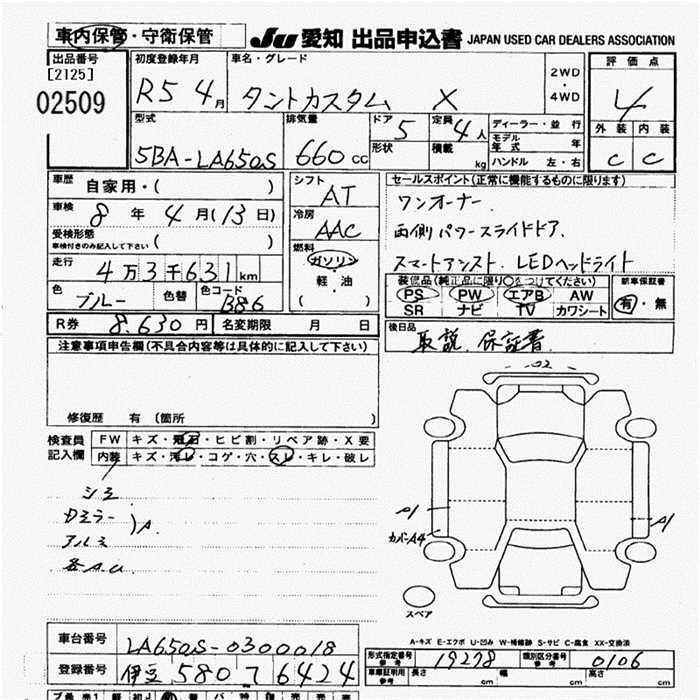 車内保管・守衛保管
JU 愛知 出品申込書 JAPAN USED CAR DEALERS ASSOCIATION
出品番号
[2125]
02509
初度登録年月
R5 4月
車名・グレード
タントカスタム X
2WD
・
4WD
評価点
4
外装 内装
C C
型式
5BA-LA650S
排気量
660 CC
ドア 5
形状
定員 4人
積載 kg
ディーラー・並行
モデル年式 年
ハンドル 左・右
車歴
自家用・( )
車検
8年 4月(13日)
受検形態
車検付きのみ記入して下さい ( )
走行
4万3千631km
色
ブルー
色替
色コード
B86
シフト
AT
冷房
AAC
燃料
ガソリン
・
軽・油
( )
セールスポイント(正常に機能するものに限ります)
ワンオーナー.
両側パワースライドドア.
スマートアシスト. LEDヘッドライト
装備品(純正品に限り○をつけてください)
PS PW エアB AW
SR ナビ TV カワシート
新車保証書
有・無
R券 8.630円
名変期限 月 日
後日品
取説. 保証書.
注意事項申告欄(不具合内容等は具体的に記入して下さい)
修復歴 有〔箇所 )
検査員
記入欄
FW キズ・飛石・ヒビ割・リペア跡・X要
内装 キズ・汚レ・コゲ・穴・スレ・キレ・破レ
シミ
Dミラー
アルミ
)A.
各A.U
U2
A1
カバーA4
A1
スペア
A-キズ E-エクボ U-凹み W-補修跡 S-サビ C-腐食 XX-交換済
車台番号
LA650S-0300018
登録番号
伊豆 580 ワ 6424
形式指定番号
参考
19278
類別区分番号
参考
0106
車庫証明用
参考
長さ cm 幅 cm 高さ cm